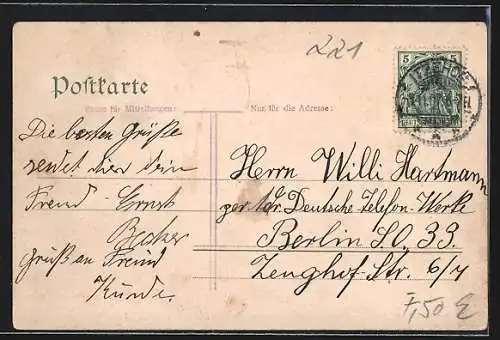 221
5 5
ITZEHOE
Postkarte
Raum für Mitteilungen:
Nur für die Adresse:
Die besten Grüße
sendet hier dein
Freund Ernst
Becker
Gruß an Freund
Kunde.
Herrn Willi Hartmann
per Adr. Deutsche Telefon-Werke
Berlin S.O. 33.
Zeughof-Str. 6/7
7,50 E